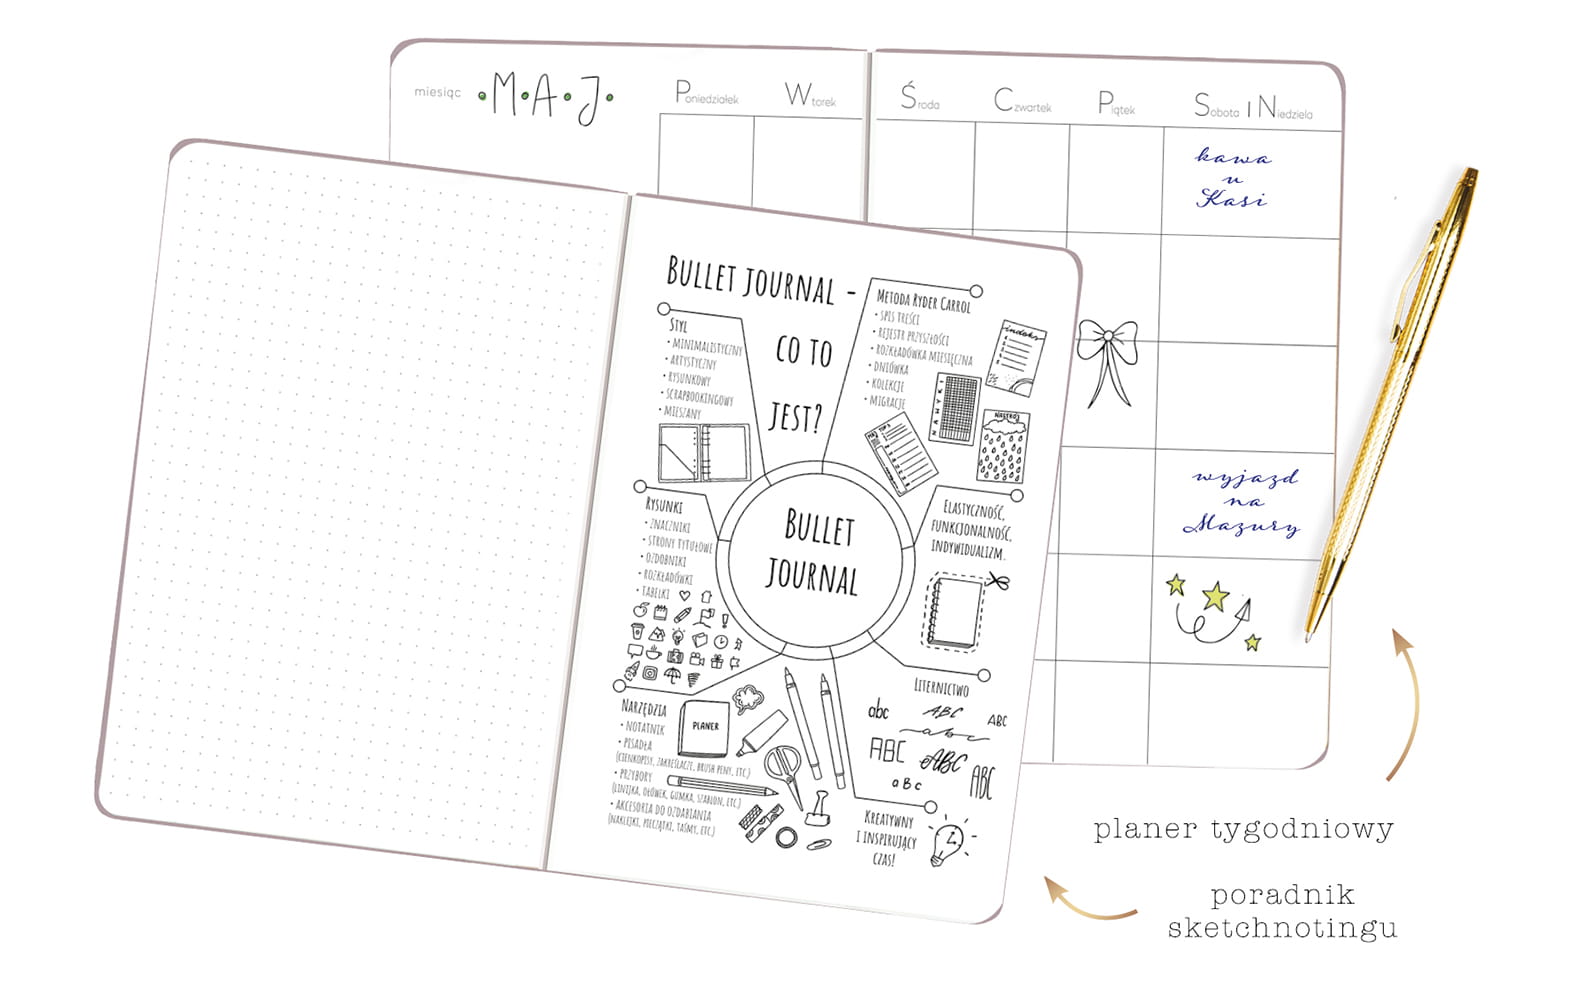 miesiąc
M.A.J.
Poniedziałek Wtorek Środa Czwartek Piątek Sobota i Niedziela
kawa
u
Kasi
wyjazd
na
Mazury
BULLET JOURNAL -
CO TO
JEST?
STYL
• MINIMALISTYCZNY
• ARTYSTYCZNY
• RYSUNKOWY
• SCRAPBOOKINGOWY
• MIESZANY
METODA RYDER CARROL
• SPIS TREŚCI
• REJESTR PRZYSZŁOŚCI
• ROZKŁADÓWKA MIESIĘCZNA
• DNIÓWKA
• KOLEKCJE
• MIGRACJE
indeks
NAWYKI
NASTRÓJ
BULLET
JOURNAL
RYSUNKI
• ZNACZNIKI
• STRONY TYTUŁOWE
• OZDOBNIKI
• ROZKŁADÓWKI
• TABELKI
ELASTYCZNOŚĆ,
FUNKCJONALNOŚĆ,
INDYWIDUALIZM.
NARZĘDZIA
• NOTATNIK
• PISADŁA
(CIENKOPISY, ZAKREŚLACZE, BRUSH PENY, ETC.)
• PRZYBORY
(LINIJKA, OŁÓWEK, GUMKA, SZABLON, ETC.)
• AKCESORIA DO OZDABIANIA
(NAKLEJKI, PIECZĄTKI, TAŚMY, ETC.)
PLANER
LITERNICTWO
abc ABC ABC
abc
ABC ABC ABC
aBc
KREATYWNY
I INSPIRUJĄCY
CZAS!
planer tygodniowy
poradnik
sketchnotingu